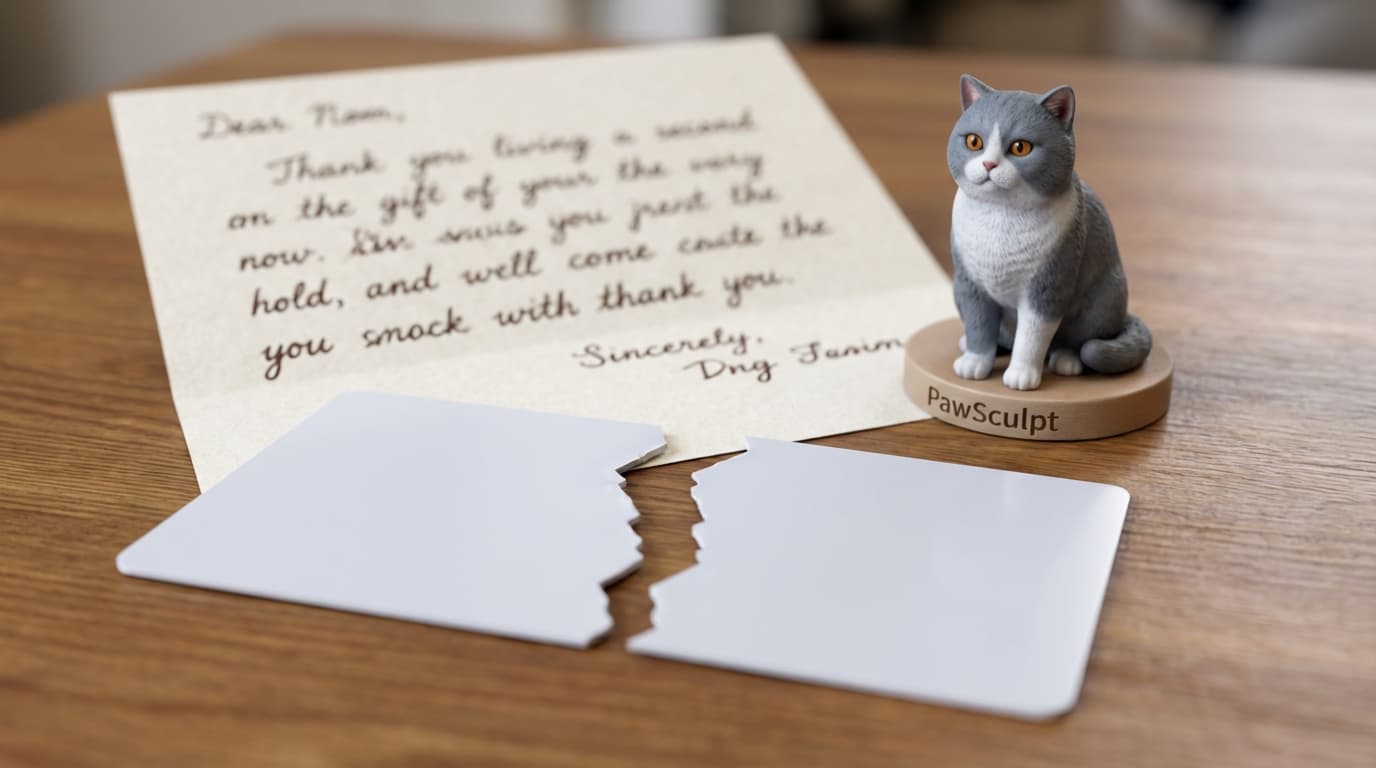 Dear
Thank you living a second
on the gift of your the very
now. you the
hold, and well come the
you smock with thank you.
Sincerely,
Dng
PawSculpt